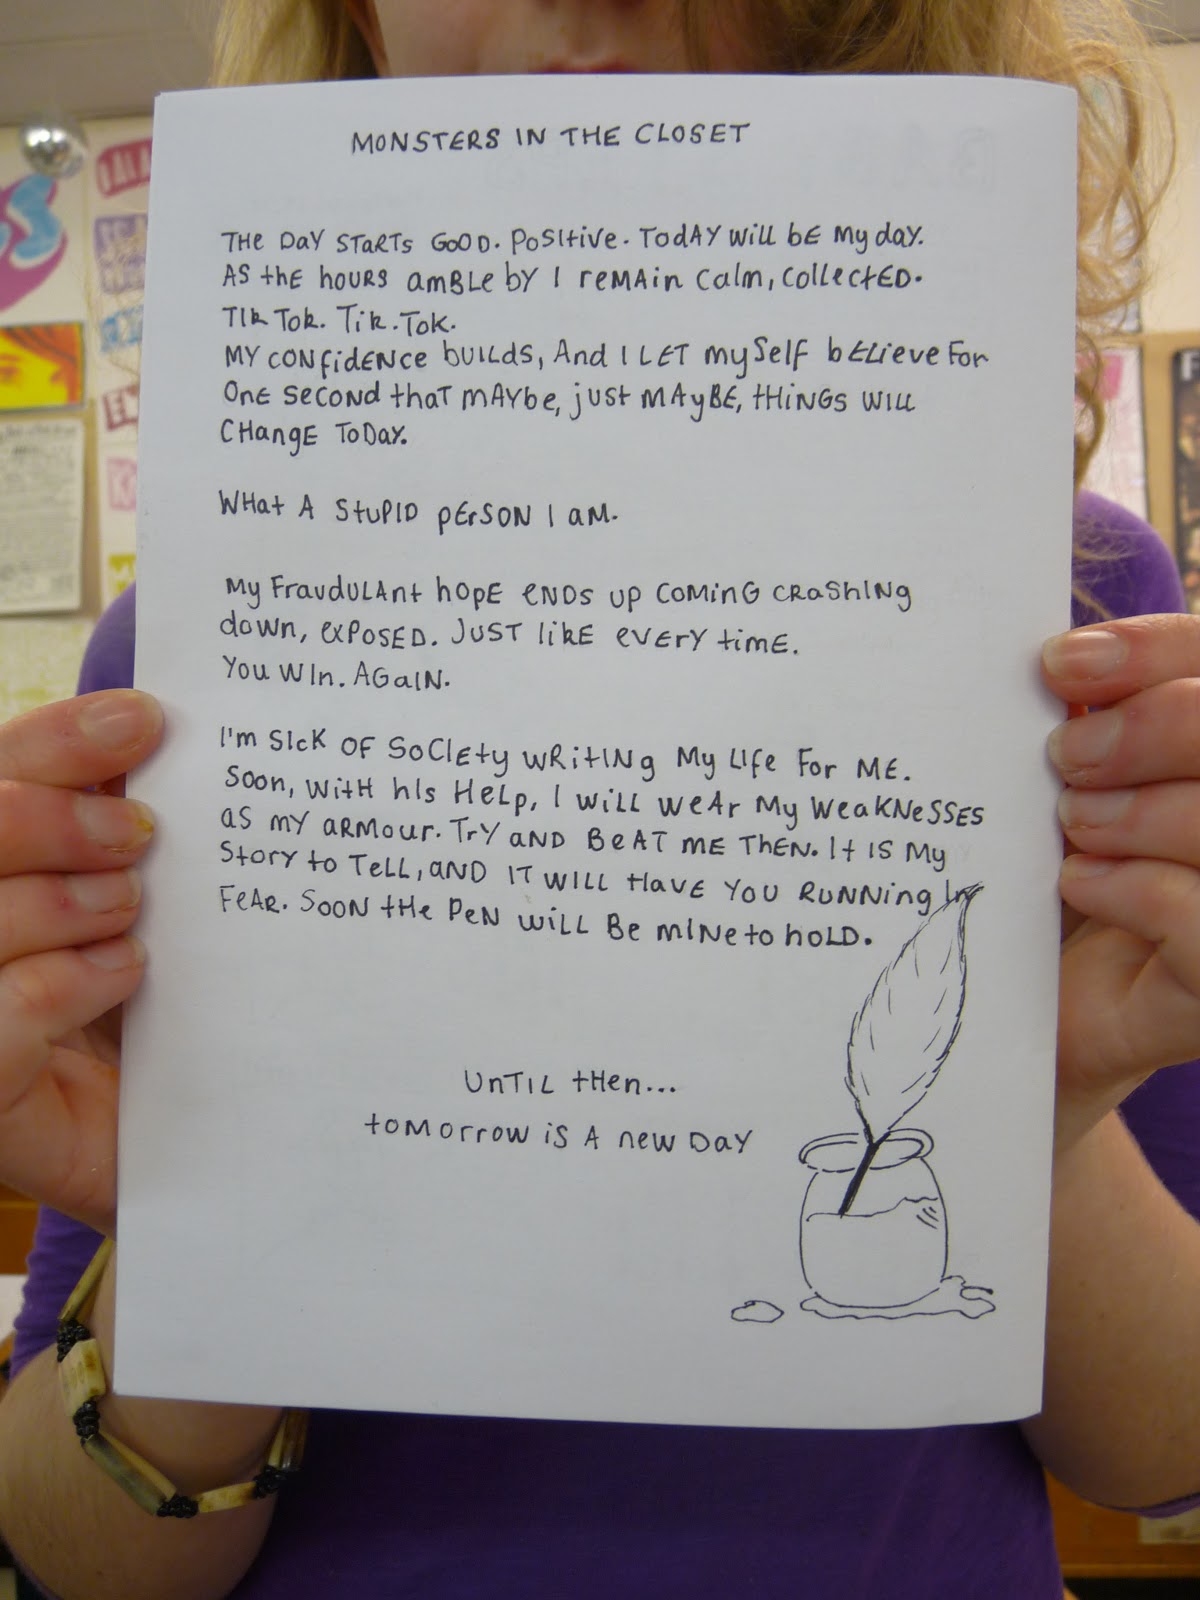 MONSTERS IN THE CLOSET
THE DAY STARTS GOOD. POSITIVE. TODAY WILL BE MY DAY.
AS THE HOURS AMBLE BY I REMAIN CALM, COLLECTED.
TIK TOK. TIK.TOK.
MY CONFIDENCE BUILDS, AND I LET MYSELF BELIEVE FOR
ONE SECOND THAT MAYBE, JUST MAYBE, THINGS WILL
CHANGE TODAY.
WHAT A STUPID PERSON I AM.
MY FRAUDULANT HOPE ENDS UP COMING CRASHING
DOWN, EXPOSED. JUST LIKE EVERY TIME.
YOU WIN. AGAIN.
I'M SICK OF SOCIETY WRITING MY LIFE FOR ME.
SOON, WITH HIS HELP, I WILL WEAR MY WEAKNESSES
AS MY ARMOUR. TRY AND BEAT ME THEN. IT IS MY
STORY TO TELL, AND IT WILL HAVE YOU RUNNING IN
FEAR. SOON THE PEN WILL BE MINE TO HOLD.
UNTIL THEN...
TOMORROW IS A NEW DAY